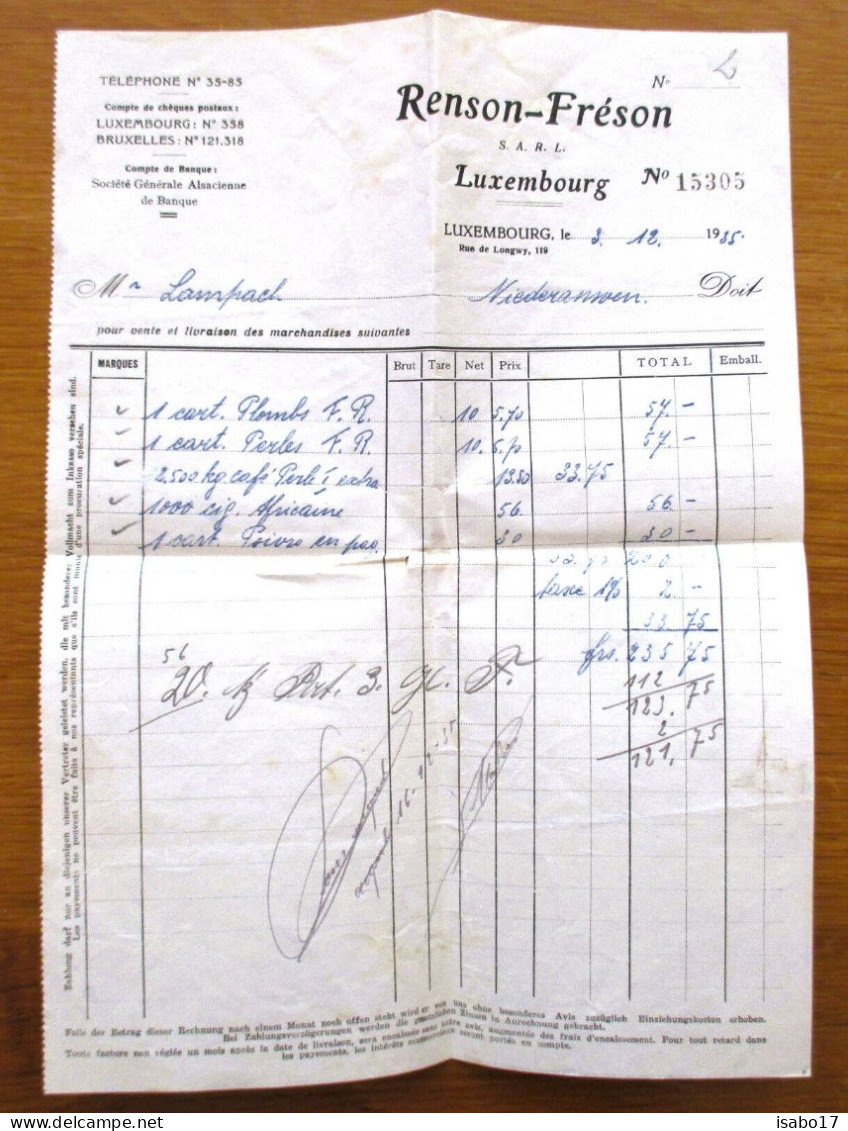 TÉLÉPHONE N° 35-85
Compte de chèques postaux:
LUXEMBOURG: N° 358
BRUXELLES: N° 121.318
Compte de Banque:
Société Générale Alsacienne
de Banque
N° L
Renson-Fréson
S. A. R. L.
Luxembourg N° 15305
LUXEMBOURG, le 3. 12. 1935.
Rue de Longwy, 119
Mr Lampach Niederanven. Doit
pour vente et livraison des marchandises suivantes
MARQUES Brut Tare Net Prix TOTAL Emball.
1 cart. Plombs F. R. 10 5.70 57.-
1 cart. Perles F. R. 10. 5.70 57.-
2.500 kg café Perle I extra 13.50 33.75
1000 cig. Africaine 56. 56.-
1 cart. Poivre en paq. 30 30.-
33.75 200
taxe 1% 2.-
33.75
frs. 235.75
56
20. 3. 112
123.75
2
121.75
16-12-35
Zahlung darf nur an diejenigen unserer Vertreter geleistet werden, die mit besonderer Vollmacht zum Inkasso versehen sind.
Les payements ne peuvent être faits à nos représentants que s'ils sont munis d'une procuration spéciale.
Falls der Betrag dieser Rechnung nach einem Monat noch offen steht wird er von uns ohne besonderes Avis zuzüglich Einziehungskosten erhoben.
Bei Zahlungsverzögerungen werden die gesetzlichen Zinsen in Anrechnung gebracht.
Toute facture non réglée un mois après la date de livraison, sera encaissée sans autre avis, augmentée des frais d'encaissement. Pour tout retard dans
les payements, les intérêts commerciaux seront portés en compte.
isabo17